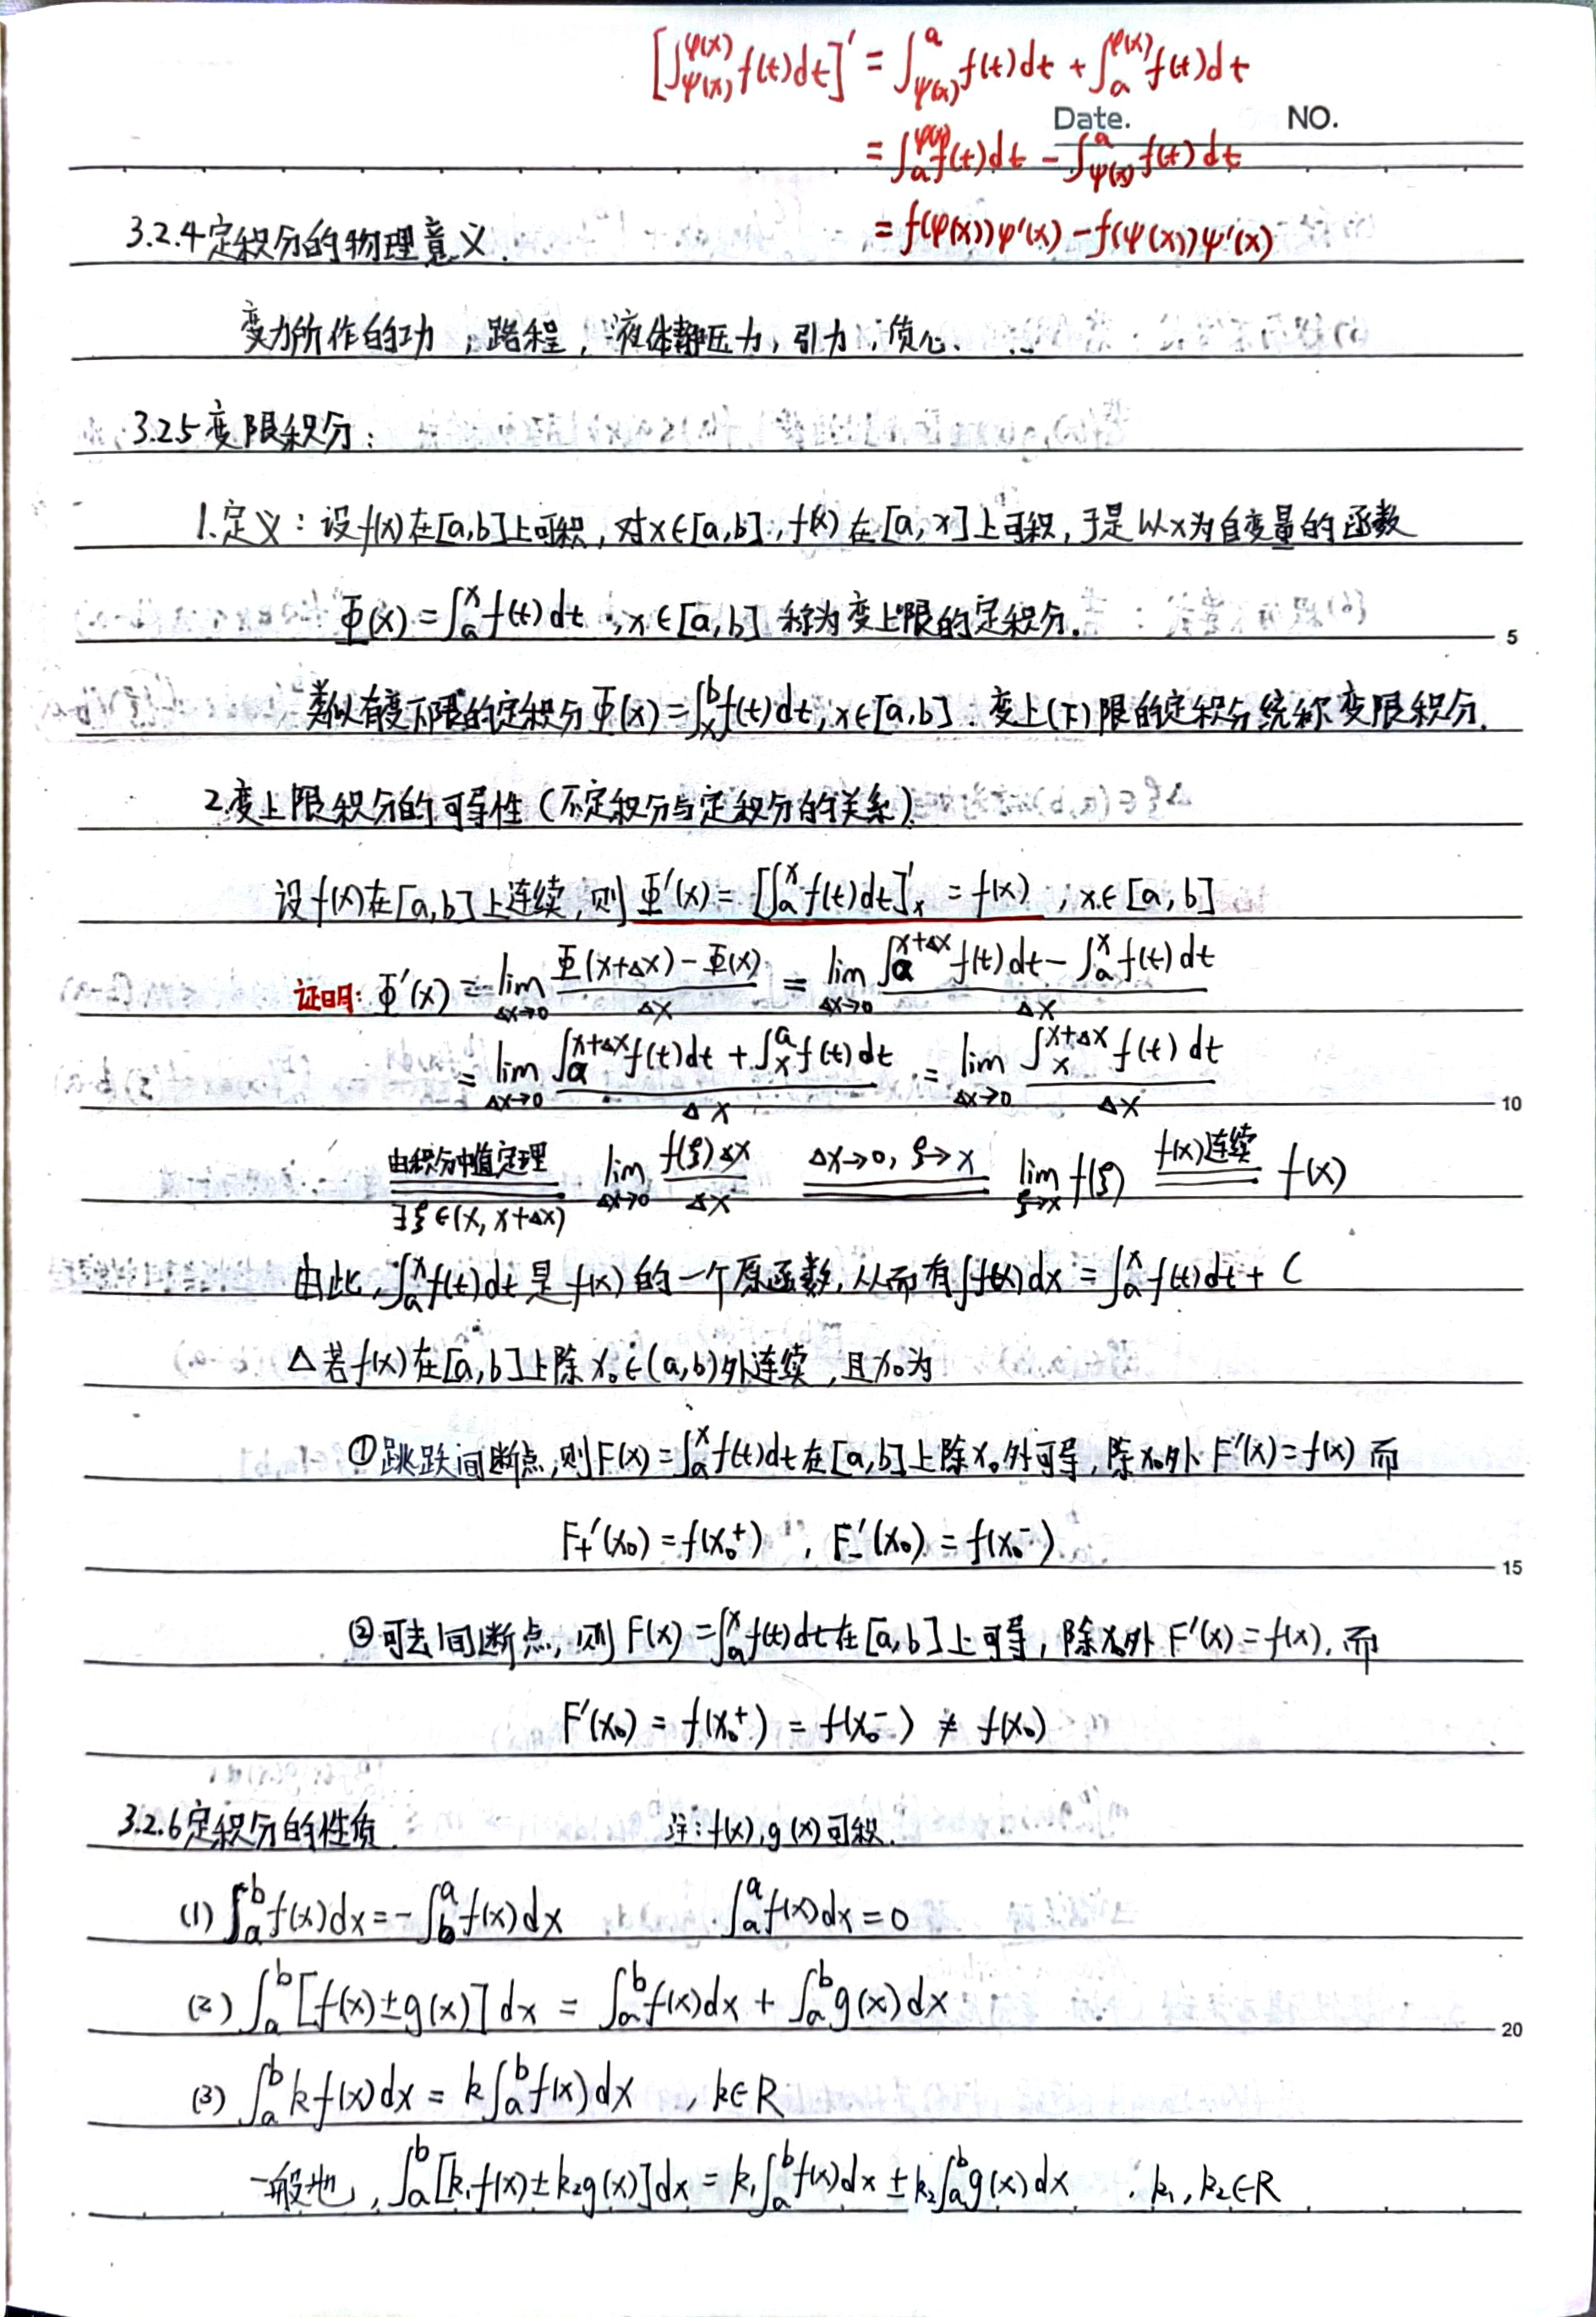 [∫_{ψ(x)}^{φ(x)} f(t)dt]' = ∫_{ψ(x)}^{a} f(t)dt + ∫_{a}^{φ(x)} f(t)dt
Date. NO.
= ∫_{a}^{φ(x)} f(t)dt - ∫_{ψ(x)}^{a} f(t)dt
= f(φ(x))φ'(x) - f(ψ(x))ψ'(x)
3.2.4定积分的物理意义.
变力所作的功,路程,液体静压力,引力,质心、...
3.2.5变限积分:
1.定义:设f(x)在[a,b]上可积,对x∈[a,b],f(x)在[a,x]上可积,于是以x为自变量的函数
Φ(x) = ∫_{a}^{x} f(t)dt,x∈[a,b] 称为变上限的定积分.
5
类似有变下限的定积分Φ(x)=∫_{x}^{b} f(t)dt,x∈[a,b].变上(下)限的定积分统称变限积分.
2.变上限积分的可导性(不定积分与定积分的关系).
设f(x)在[a,b]上连续,则Φ'(x) = [∫_{a}^{x} f(t)dt]'_x = f(x),x∈[a,b]
证明:Φ'(x) = lim_{Δx→0} (Φ(x+Δx)-Φ(x))/Δx = lim_{Δx→0} (∫_{a}^{x+Δx} f(t)dt - ∫_{a}^{x} f(t)dt)/Δx
= lim_{Δx→0} (∫_{a}^{x+Δx} f(t)dt + ∫_{x}^{a} f(t)dt)/Δx = lim_{Δx→0} (∫_{x}^{x+Δx} f(t)dt)/Δx
10
由积分中值定理 ∃ξ∈(x,x+Δx) lim_{Δx→0} f(ξ)Δx/Δx Δx→0,ξ→x lim_{ξ→x} f(ξ) f(x)连续 f(x)
由此,∫_{a}^{x} f(t)dt是f(x)的一个原函数,从而有∫f(x)dx = ∫_{a}^{x} f(t)dt + C
△若f(x)在[a,b]上除x₀∈(a,b)外连续,且x₀为
①跳跃间断点,则F(x)=∫_{a}^{x} f(t)dt在[a,b]上除x₀外可导,除x₀外F'(x)=f(x)而
F₊'(x₀) = f(x₀⁺) , F₋'(x₀) = f(x₀⁻)
15
②可去间断点,则F(x)=∫_{a}^{x} f(t)dt在[a,b]上可导,除x₀外F'(x)=f(x),而
F'(x₀) = f(x₀⁺) = f(x₀⁻) ≠ f(x₀)
3.2.6定积分的性质. 注:f(x),g(x)可积.
(1) ∫_{a}^{b} f(x)dx = -∫_{b}^{a} f(x)dx ∫_{a}^{a} f(x)dx = 0
(2) ∫_{a}^{b} [f(x)±g(x)]dx = ∫_{a}^{b} f(x)dx + ∫_{a}^{b} g(x)dx
20
(3) ∫_{a}^{b} kf(x)dx = k∫_{a}^{b} f(x)dx ,k∈R
一般地,∫_{a}^{b} [k₁f(x)±k₂g(x)]dx = k₁∫_{a}^{b} f(x)dx ± k₂∫_{a}^{b} g(x)dx ,k₁,k₂∈R